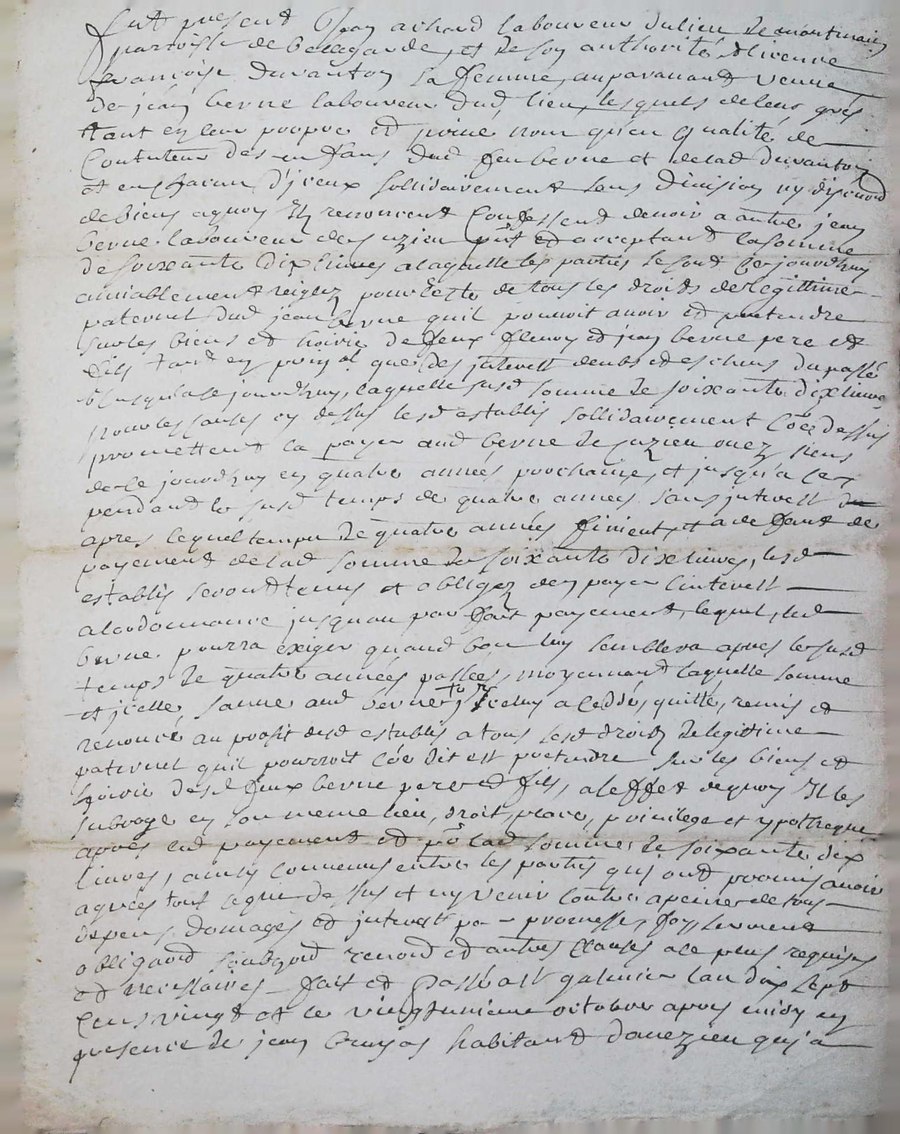 fut present Jean achard laboureur du lieu de montmain
parroisse de bellegarde, et de son authorité
francoise duvanton sa femme, auparavant veuve
de jean berne laboureur dud. lieu, lesquels de leur gré
tant en leur propre et privé nom qu'en qualité de
Contuteur des enfans dud feu berne et de lad duvanton
et en chacun d'iceux sollidairement sans division ny
de biens a quoy Ils renoncent Confessent devoir a autre jean
berne laboureur de cuzieu pnt et acceptant la somme
de soixante dix livres a laquelle les parties se sont cejourdhuy
amiablement reiglez pour reste de tous les droits de legittime
paternel dud jean berne quil pouvoit avoir et pretendre
sur les biens et hoirie de feux et jean berne pere et
fils tant en prinal que des interest deubs et escheus du passé
jusqua cejourdhuy, laquelle susd somme de soixante dix livres
pour les causes cy dessus lesd establis sollidairement Coe dessus
promettent la payer aud berne de cuzieu
de ce jourdhuy en quatre années prochaine, et jusqu'a ce
pendant le susd temps de quatre années sans interest
apres lequel temps de quatre années finient et a deffaut de
payement de lad somme de soixante dix livres, lesd
establis seront tenus et obligez den payer linterest
a lordonnance jusquau parfait payement, lequel, led
berne pourra exiger quand bon luy semblera apres le susd
temps de quatre années passées, moyennant laquelle somme
et icelle aud berne icelluy a ceddé, quitté, remis et
renoncé au profit desd establis a tous lesd droits de legitime
paternel quil pourroit Coe dit est pretendre sur les biens et
hoirie desd feux berne pere et fils, a leffet de quoy Il les
subroge en son meme lieu, droit, place, privilege et ypotheque
après led payement et pr lad somme de soixante dix
livres, ainsy convenus entre les parties qui ont promis avoir
agrées tout ce que dessus et ny venir contre a peine de tous
depens, domages et interest par promesse, foy, serment
obligaond renond et autres clauses a ce plus requises
et necessaires fait et Passé a st galmier lan dix sept
Cens vingt et le vingtunieme octobre apres midy en
presence de jean habitant qui a